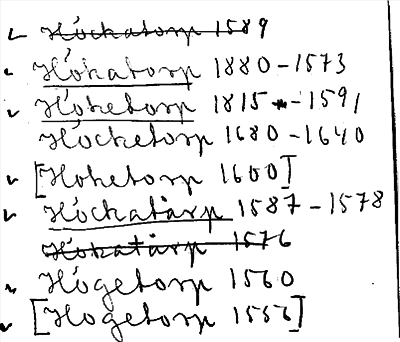 Hóckatorp 1589
Hókatorp 1880-1573
Hóketorp 1815-1591
Hócketorp 1680-1640
[Hoketorp 1600]
Hóckatårp 1587-1578
Hókatårp 1576
Hógetorp 1560
[Hogetorp 1556]